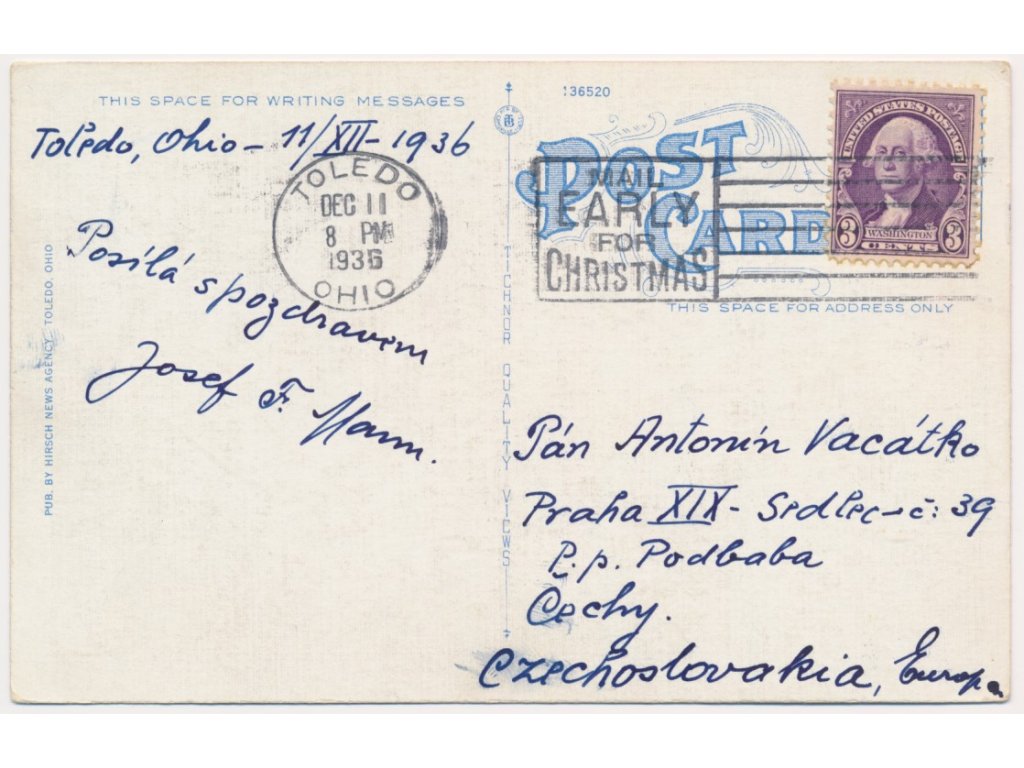 THIS SPACE FOR WRITING MESSAGES
Toledo, Ohio – 11/XII – 1936
TOLEDO
DEC 11
8 PM
1936
OHIO
Posílá s pozdravem
Josef F. Mann.
PUB. BY HIRSCH NEWS AGENCY, TOLEDO, OHIO
TICHNOR QUALITY VIEWS
136520
POST CARD
MAIL
EARLY
FOR
CHRISTMAS
UNITED STATES POSTAGE
WASHINGTON
3 CENTS 3
THIS SPACE FOR ADDRESS ONLY
Pán Antonín Vacátko
Praha XIX – Sedlec – č: 39
P. p. Podbaba
Čechy.
Czechoslovakia, Europa